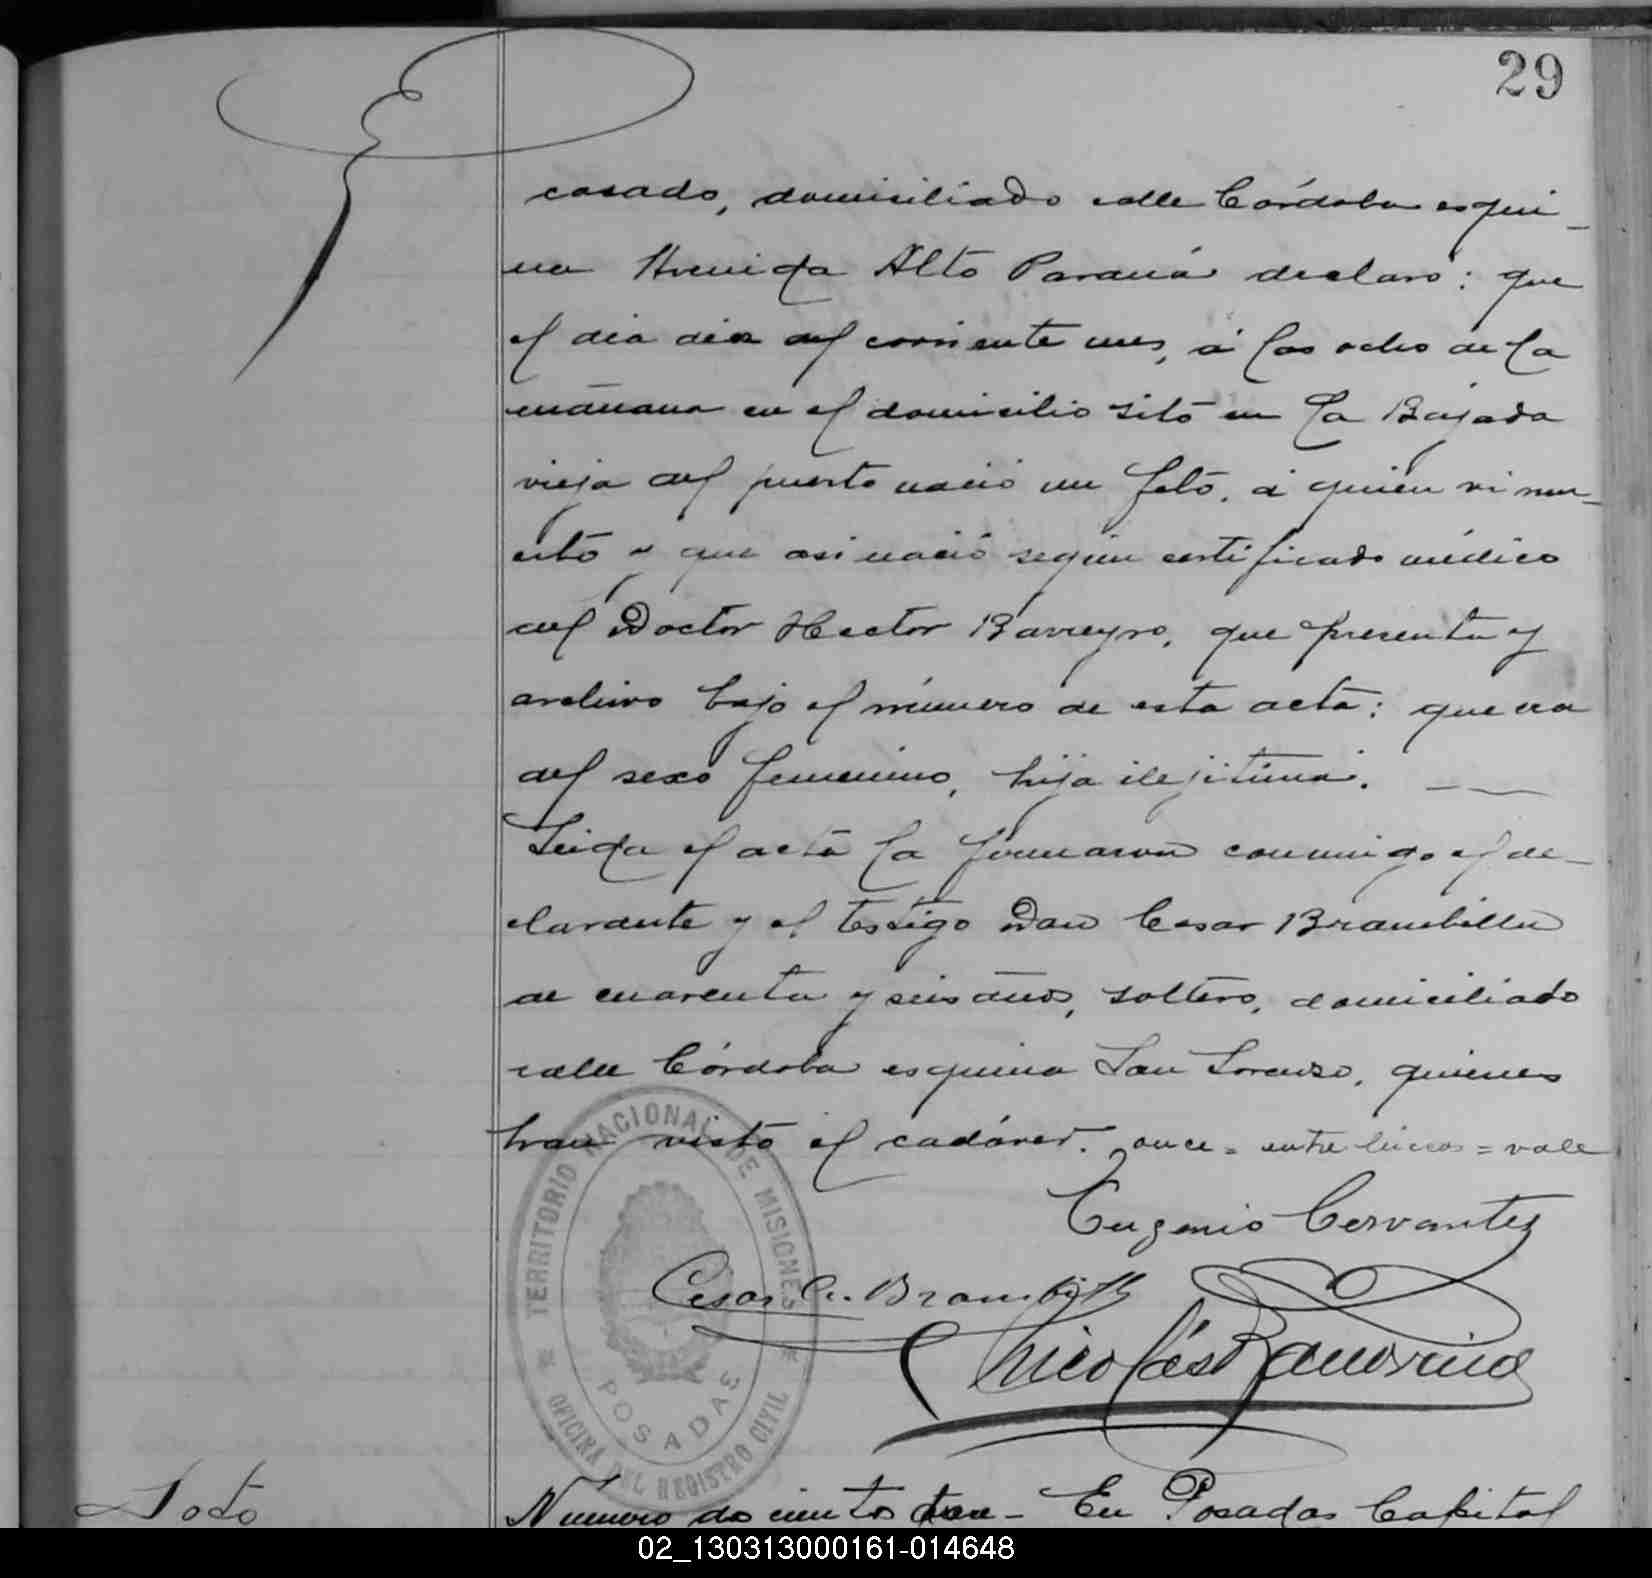 29
casado, domiciliado calle Córdoba esqui-
na Avenida Alto Paraná declaro: que
el dia diez del corriente mes, á las ocho de la
mañana en el domicilio sito en la Bajada
vieja del puerto nació un feto, á quien vi mu-
erto y que asi nació segun certificado médico
del Doctor Hector Barreyro, que presenta y
archivo bajo el número de esta acta: que era
del sexo femenino, hija ilejitima.
Leida el acta la firmaron conmigo el de-
clarante y el testigo Don Cesar Brambilla
de cuarenta y seis años, soltero, domiciliado
calle Córdoba esquina San Lorenzo, quienes
han visto el cadáver. once = entre líneas = vale
Eugenio Cervantes
Cesar Brambilla
Nicolás
TERRITORIO NACIONAL DE MISIONES
POSADAS
OFICINA DEL REGISTRO CIVIL
Numero docientos En Posadas Capital
02_130313000161-014648